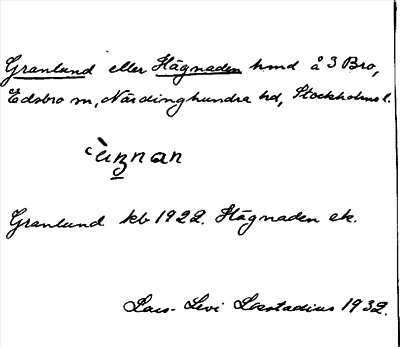 Granlund eller Hägnaden hmd å 3 Bro,
Edsbro sn, Närdinghundra hd, Stockholms l.
Granlund kb 1922. Hägnaden ek.
Lars-Levi Læstadius 1932.